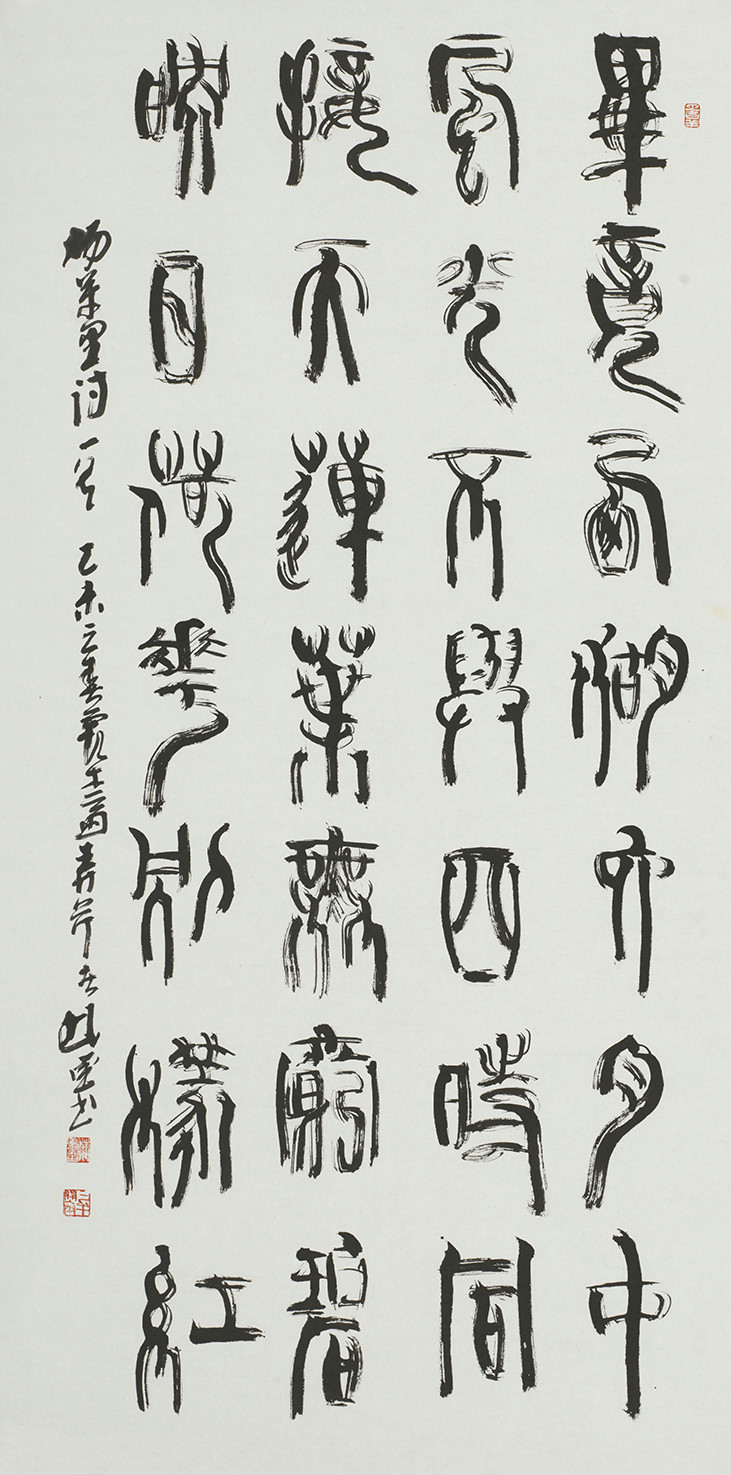 畢竟西湖六月中
風光不與四時同
接天蓮葉無窮碧
映日荷華別樣紅
楊萬里詩一首 乙未之春